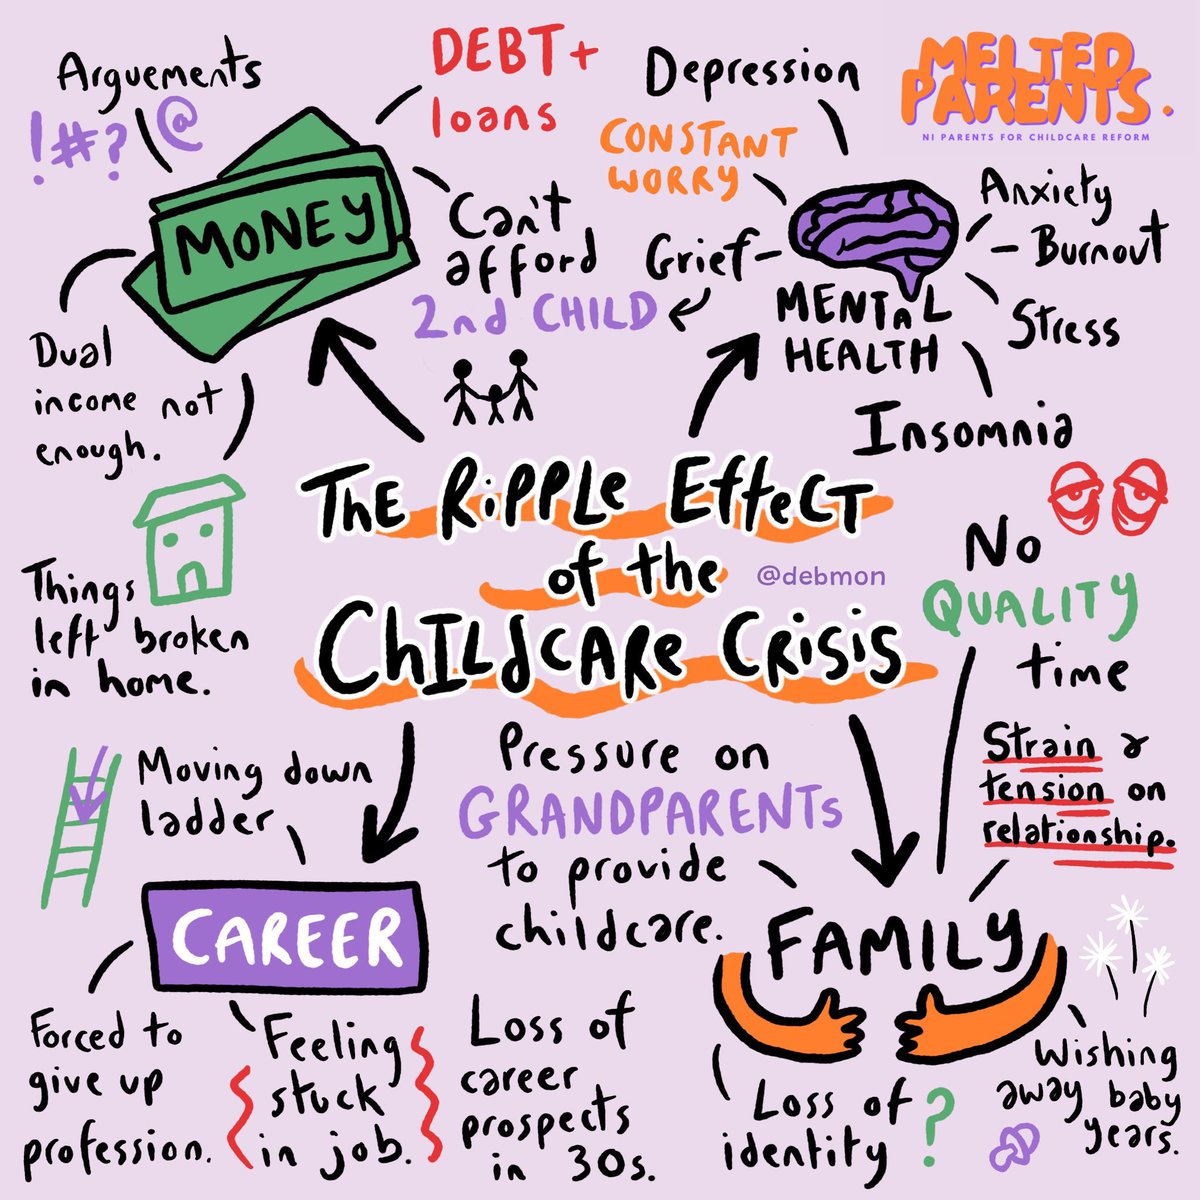 Arguements
!#?@
DEBT+
loans
Depression
CONSTANT
WORRY
MELTED
PARENTS.
NI PARENTS FOR CHILDCARE REFORM
MONEY
Can't
afford
2nd CHILD
Grief
Anxiety
Burnout
Stress
MENtaL
HEALTH
Insomnia
Dual
income not
enough.
The Ripple Effect
of the
Childcare Crisis
@debmon
Things
left broken
in home.
No
QUALITY
time
Moving down
ladder
Pressure on
GRANDPARENTs
to provide
childcare.
Strain &
tension on
relationship.
CAREER
FAMILY
Forced to
give up
profession.
Feeling
stuck
in job.
Loss of
career
prospects
in 30s.
Loss of
identity ?
Wishing
away baby
years.